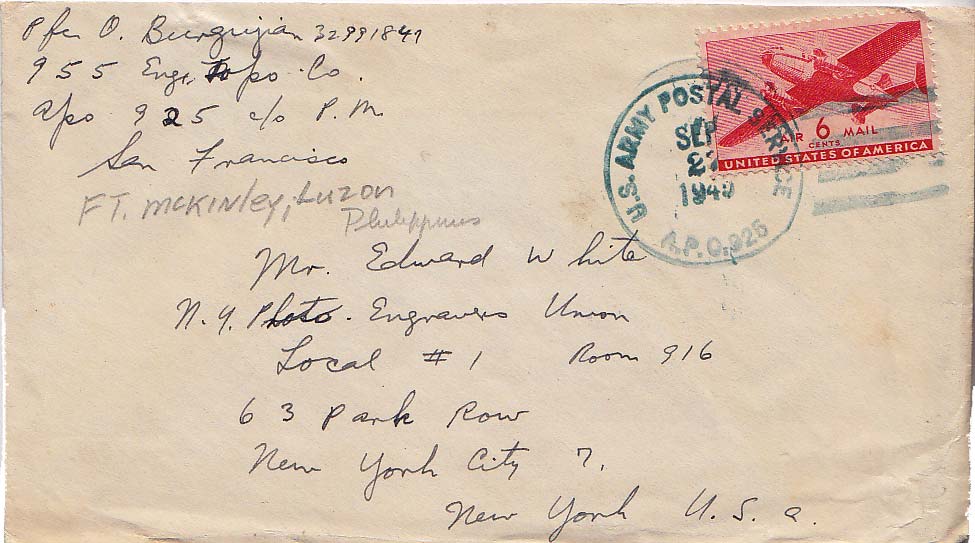 Pfc O. Burgujian 32991841
955 Eng. Topo. Co.
apo 925 c/o P.M.
San Francisco
FT. McKinley, Luzon
Philippines
U.S. ARMY POSTAL SERVICE
SEP
1945
A.P.O. 925
AIR 6 MAIL
CENTS
UNITED STATES OF AMERICA
Mr. Edward White
N.Y. Photo. Engravers Union
Local # 1 Room 916
63 Park Row
New York City 7,
New York U.S.a.